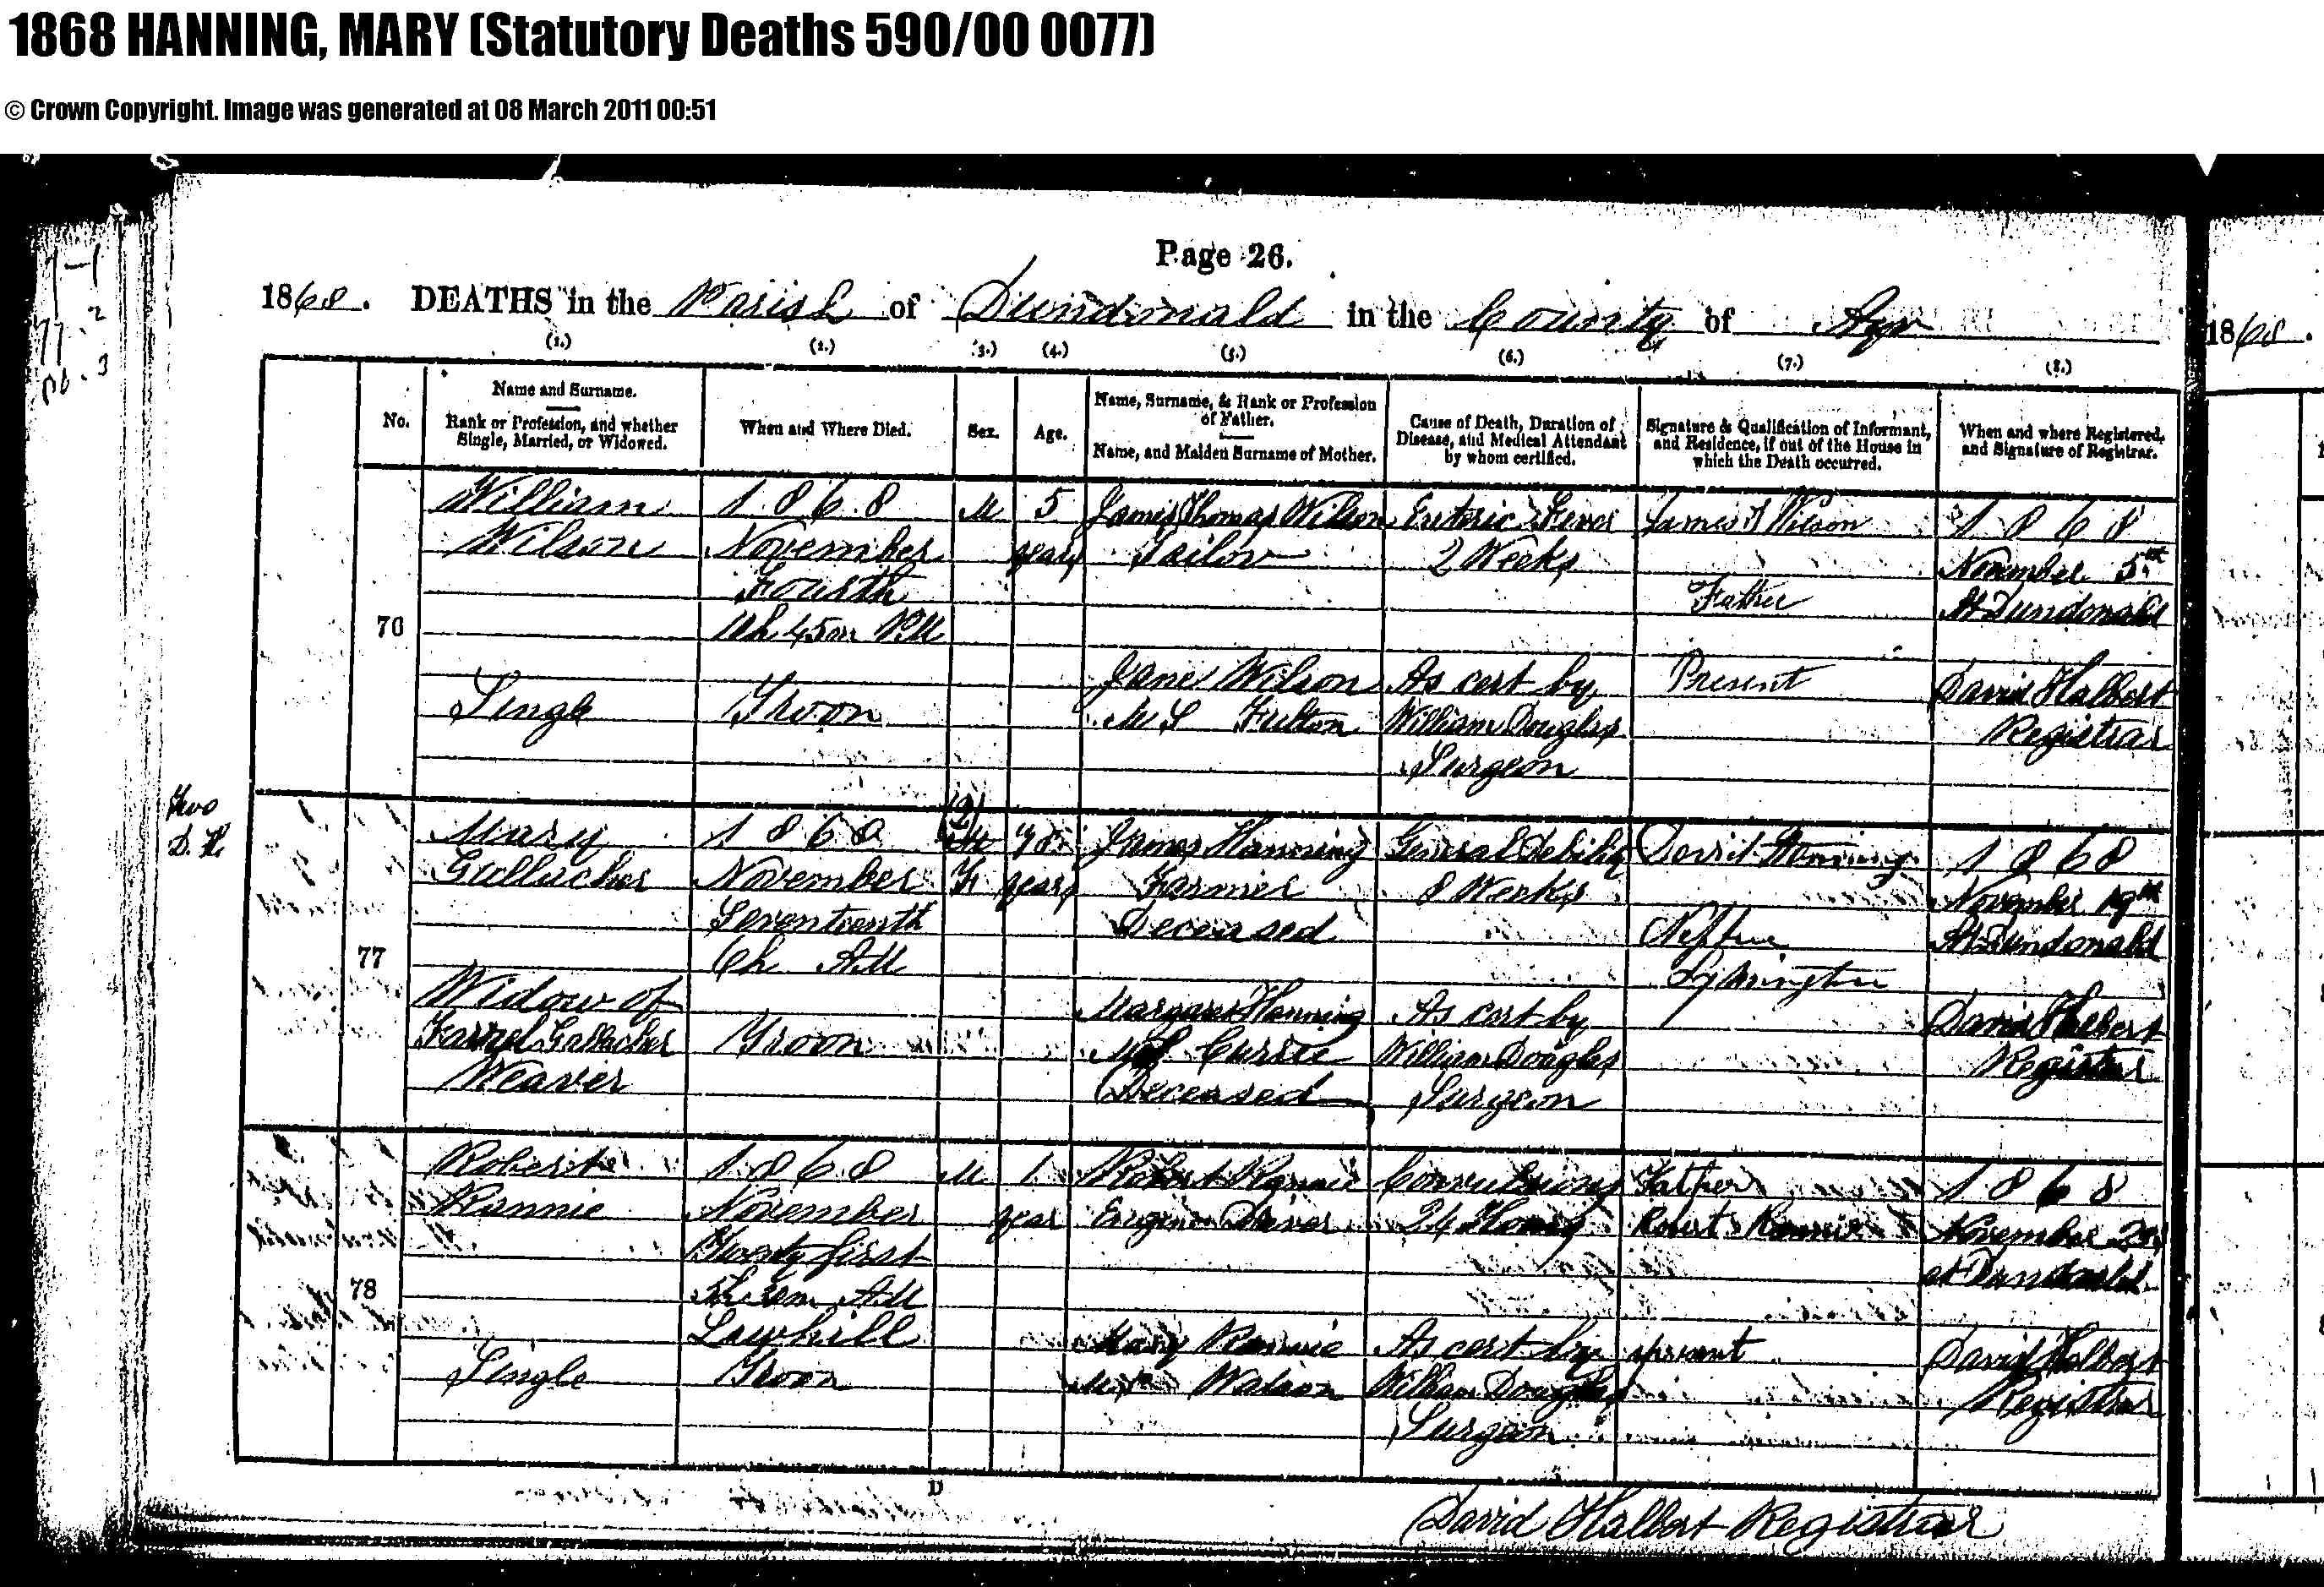 1868 HANNING, MARY (Statutory Deaths 590/00 0077)
© Crown Copyright. Image was generated at 08 March 2011 00:51
Page 26.
1868. DEATHS in the Parish of Dundonald in the County of Ayr
1868.
(1.) (2.) (3.) (4.) (5.) (6.) (7.) (8.)
No.
Name and Surname.
Rank or Profession, and whether
Single, Married, or Widowed.
When and Where Died.
Sex.
Age.
Name, Surname, & Rank or Profession
of Father.
Name, and Maiden Surname of Mother.
Cause of Death, Duration of
Disease, and Medical Attendant
by whom certified.
Signature & Qualification of Informant,
and Residence, if out of the House in
which the Death occurred.
When and where Registered,
and Signature of Registrar.
76
William
Wilson
Single
1868
November
Fourth
10h 45m PM
Troon
M
5
years
James Thomas Wilson
Tailor
Jane Wilson
M S Fulton
Enteric Fever
2 Weeks
As cert by
William Douglas
Surgeon
James T Wilson
Father
Present
1868
November 5th
At Dundonald
David Halbert
Registrar
Two
D. H.
77
Mary
Gallacher
Widow of
Gallacher
Weaver
1868
November
Seventeenth
6h AM
Troon
(2)
M
F
years
James Hanning
Farmer
Deceased
Margaret Hanning
M S Currie
Deceased
General Debility
8 Weeks
As cert by
William Douglas
Surgeon
David Hanning
Symington
1868
November 19th
At Dundonald
David Halbert
Registrar
78
Robert
Rannie
Single
1868
November
Twenty first
AM
Lawhill
Troon
M
1
year
Robert Rannie
Engine Driver
Mary Rannie
M S Watson
Convulsions
24 Hours
As cert by
William Douglas
Surgeon
Father
Robert Rannie
present
1868
November
at Dundonald
David Halbert
Registrar
D
David Halbert Registrar